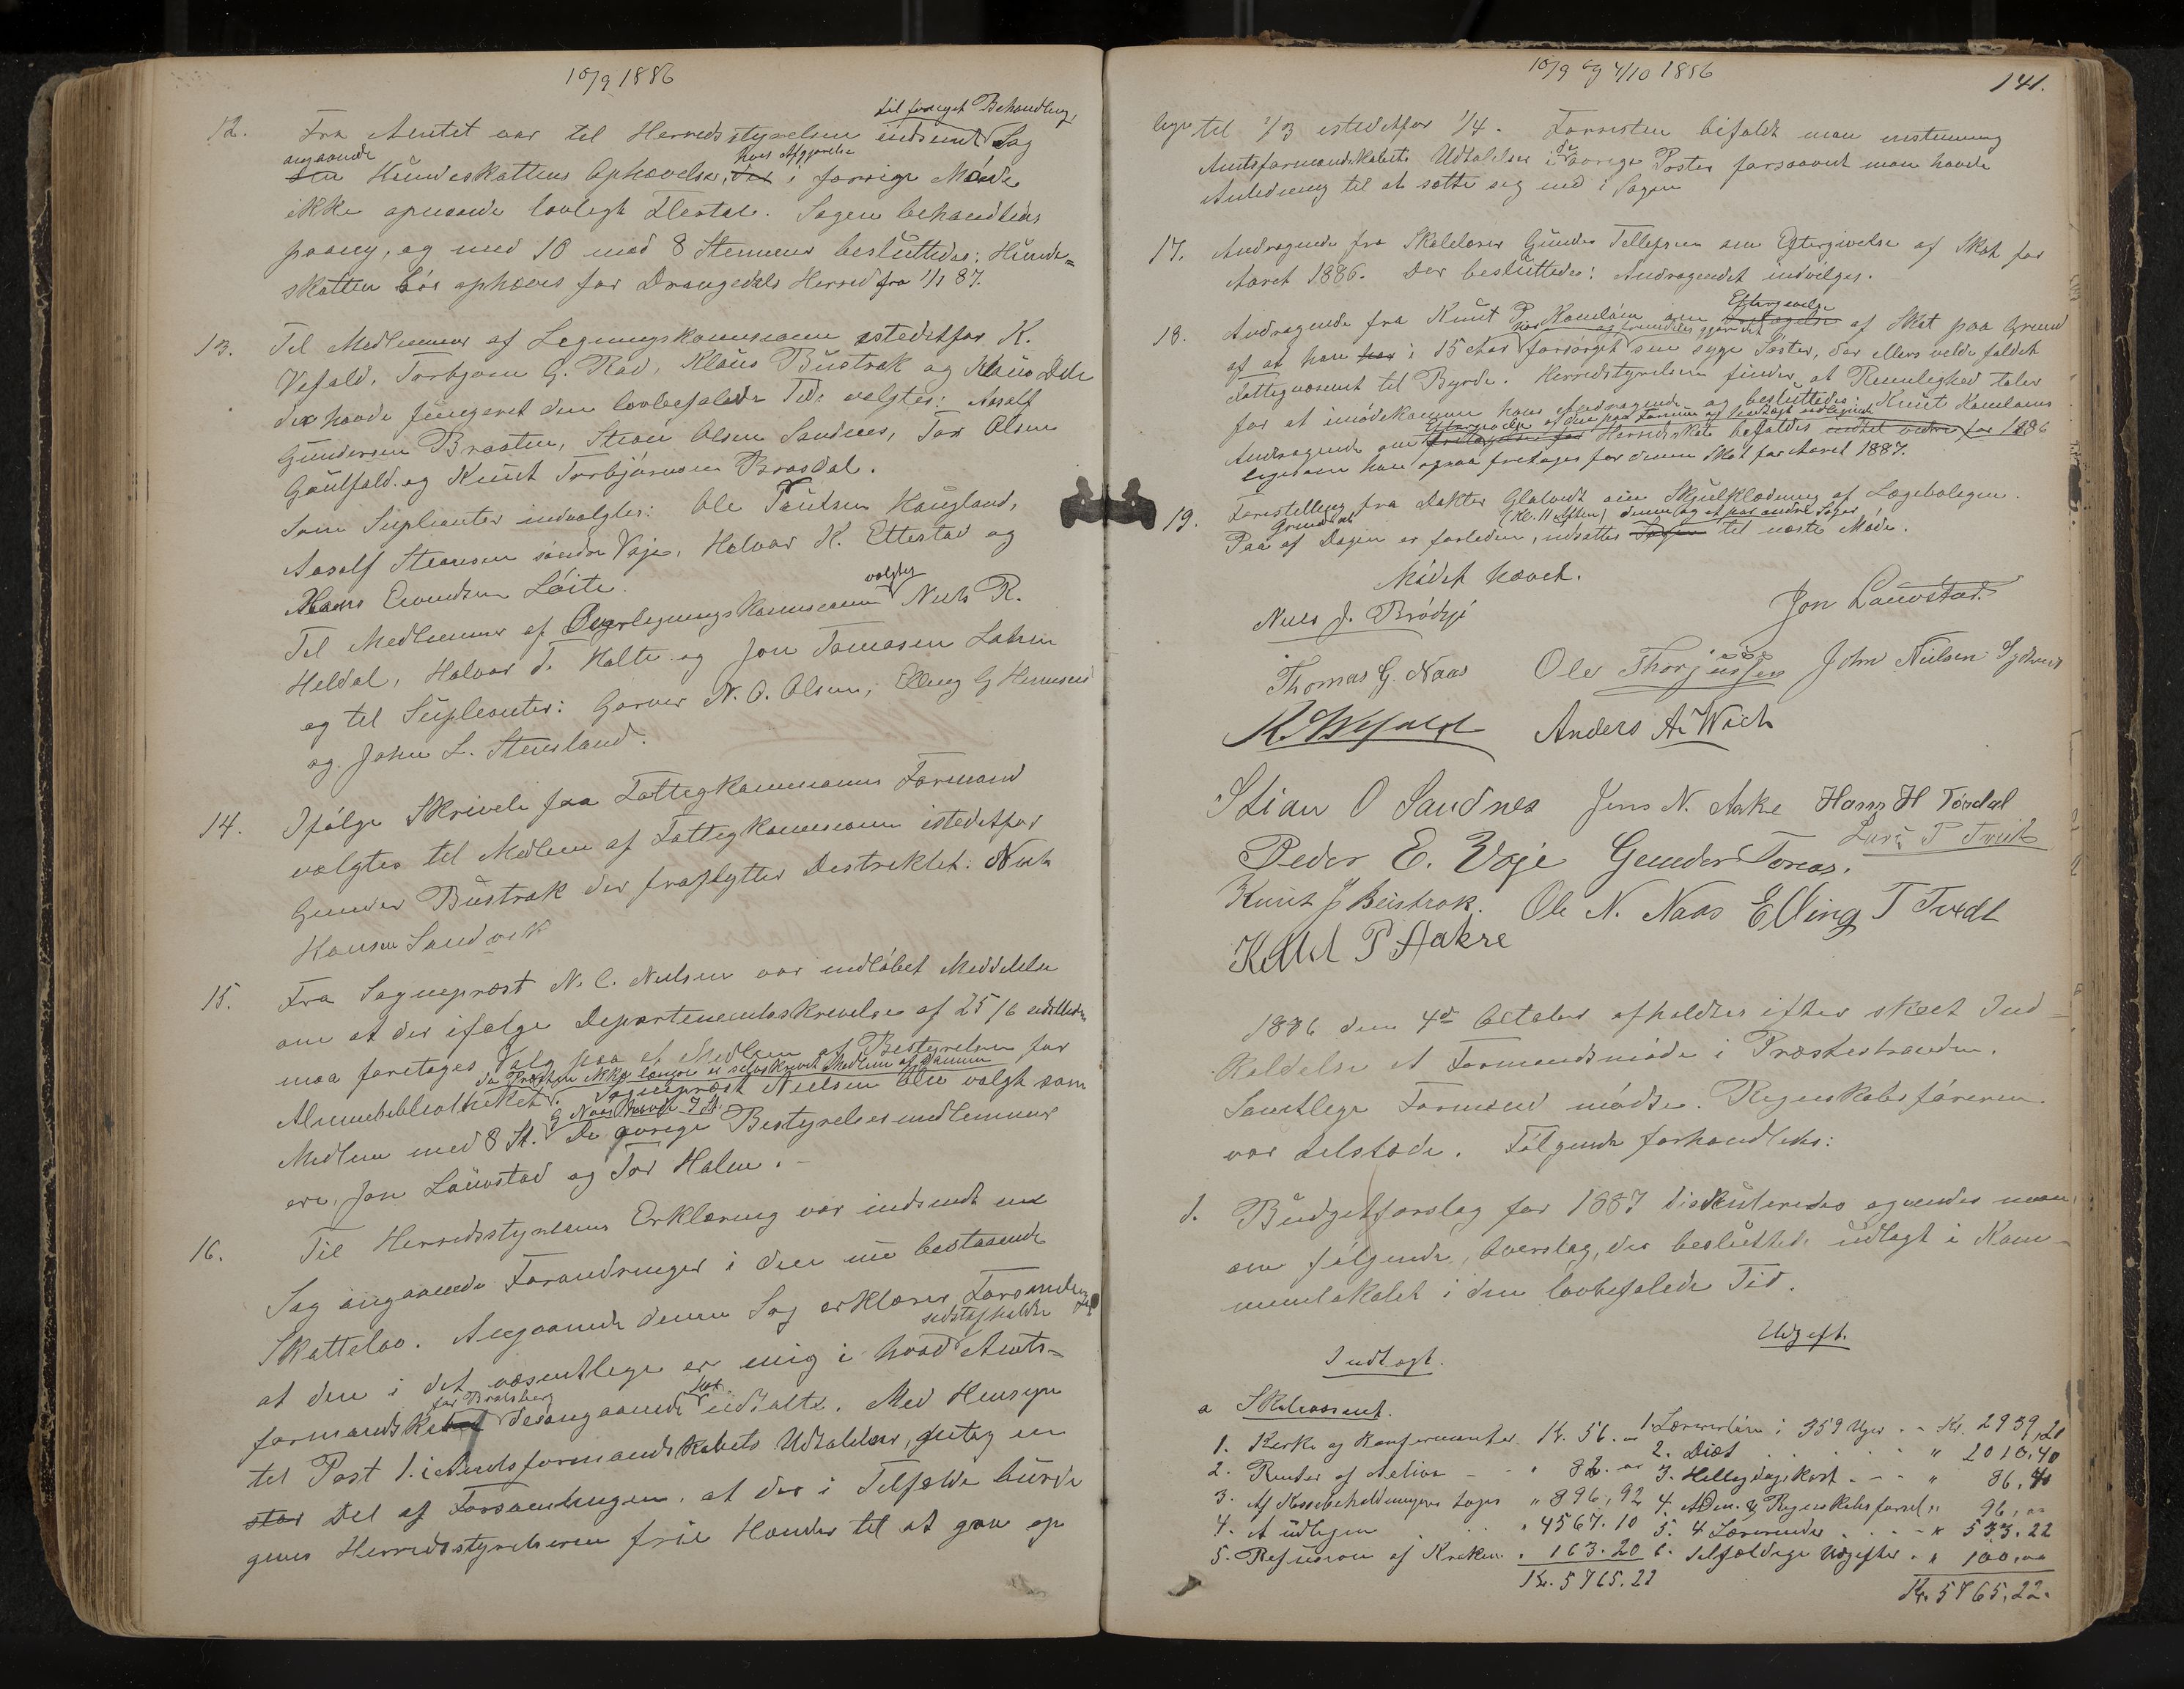 10/9 1886
til fornyet Behandling
12. Fra Amtet var til Herredsstyrelsen indsendt Sag
angaaende hvis Afgjørelse
Hundeskattens Ophævelse, i forrige Møde
ikke opnaaede lovligt Flertal. Sagen behandledes
paany, og med 10 mod 8 Stemmer besluttedes: Hunde=
skatten bør ophæves for Drangedals Herred fra 1/1 87.
13. Til Medlemmer af Ligningskommissionen istedetfor K.
Vefald, Torbjørn G. Rød, Klaus Bustrak og Klaus Dale
der havde fungeret den lovbefalede Tid: valgtes: Aasolf
Gundersen Braaten, Stian Olsen Sandnes, Tor Olsen
Gautfald og Knut Torbjørnsen Brosdal.
Som Supleanter indvalgtes: Ole Paulsen Haugland,
Aasolf Stiansen søndre Voje, Halvor K. Ettestad og
Hans Eivindsen Løite.
valgtes
Til Medlemmer af Overligningskommissionen Niels R.
Heldal, Halvor T. Holte og Jon Tomasen Lahn
og til Supleanter: Garver N. O. Olsen, Elling G
og John L. Stensland.
14. Ifølge Skrivelse fra Fattigkommissionens Formand
valgtes til Medlem af Fattigkommissionen istedetfor
Gunder Bustrak der fraflytter Distriktet: Niels
Hansen Sandvik
15. Fra Sognepræst N. C. Nielsen var indløbet Meddelelse
om at der ifølge Departementsskrivelse af 25/6 sidstleden
maa foretages Valg paa et Medlem af Bestyrelsen for
da Præsten ikke længer er selvskrevet Medlem af samme
Almuebibliotheket. Sognepræst Nielsen blev valgt som
G Naas havde 7 St.
Medlem med 8 St. De øvrige Bestyrelsesmedlemmer
ere, Jon Lauvstad og Tor Holm. –
16. Til Herredsstyrelsens Erklæring var indsendt en
Sag angaaende Forandringer i den nu bestaaende
Skattelov. Angaaende denne Sag erklærer Forsamlingen
sidstafholdte
at den i det væsentlige er enig i hvad Amts=
for Bratsberg har
formandskabet desangaaende udtalte. Med Hensyn
til Post 1. i Amtsformandskabets Udtalelser, antog en
stor Del af Forsamlingen, at der i Tilfælde burde
gives Herredsstyrelserne frie Hænder til at gaa op
10/9 og 4/10 1886
141.
ligr til 1/3 istedetfor 1/4. Forresten bifaldt man enstemmig
de
Amtsformandskabets Udtalelser i øvrige Poster forsaavidt man havde
Anledning til at sætte sig ind i Sagen
17. Andragende fra Skolelærer Gunder Tellefsen om Eftergivelse af Skat for
Aaret 1886. Der besluttedes: Andragendet indvilges.
Eftergivelse
18. Andragende fra Knut P. Kamlom om Fritagelse af Skat paa Grund
har og fremdeles gjør det
af at han har i 15 Aar forsørget sin syge Søster, der ellers vilde faldet
Fattigvæsenet til Byrde. Herredsstyrelsen finder at Rimelighed taler
for at imødekomme hans Andragende og besluttedes: Knut Kamloms
Eftergivelse af den paa Formue og Indtægt udlignede
Andragende om fritagelse for Herredsskat bifaldes for 1886
ligesom han ogsaa fritages for denne Skat for Aaret 1887.
19. Forestilling fra Doktor om Skjulklædning af Lægeboligen.
Grund at (Kl. 11 Aften) denne og et par andre Sager
Paa af Dagen er forleden, udsættes Sagen til næste Møde.
Mødet hævet.
Niels J. Brødsjø
Jon Lauvstad.
Thomas G. Naas Ole Thorjussen John Nielsen
K. Wefald Anders A. Woich
Stian O Sandnes Jens N. Aske Hans H Tørdal
Lars P Tveit
Peder E. Voje Gunder Tomas.
Knut J Bustrak. Ole N. Naas Elling T Tvedt
Kittil P Aakre
1886 den 4de Oktober afholdtes efter skeet Ind=
kaldelse et Formandsmøde i Præstestranden.
Samtlige Formænd mødte. Regnskabsføreren
var tilstede. Følgende forhandledes:
1. Budgetforslag for 1887 diskuteredes og enedes man
om følgende Overslag, der besluttet udlagt i Kom=
munelokalet i den lovbefalede Tid.
Udgift.
Indtægt.
a Skolevæsenet.
1. Kirke og Konfirmanter Kr. 56. „ 1. Lærerløn i 359 Uger - - Kr. 2939,20
2. Renter af Aktiva - - „ 82. „ 2. Diæt „ 2010,40
3. Af Kassebeholdningen tages „ 896,92 3. Helligdagskost - - - „ 86,40
4. At udlignes „ 4567.10 4. Adm. & Regnskabsførsel „ 96,00
5. Refusion af Kirken „ 163.20 5. 4 Lærerinder - - - „ 533.22
6. Tilfældige Udgifter „ 100,00
Kr. 5765.22
Kr. 5765,22.